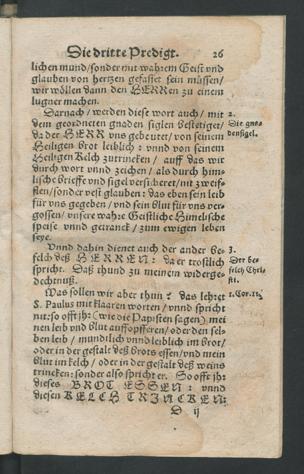 Die dritte Predigt. 26
lichen mund/sonder mit wahrem Geist vnd
glauben von hertzen gefasset sein müssen/
wir wöllen dann den HERRen zu einem
lugner machen.
Darnach/werden diese wort auch/mit
dem geordneten gnaden siglen bestetiget/
da der HERR vns gebeutet/von seinem
Heiligen brot leiblich: vnnd von seinem
Heiligen Kelch zutrincken/auff das wir
durch wort vnnd zeichen/als durch him-
lische brieffe vnd sigel versicheret/nit zweif-
flen/sonder vest glauben: das eben sein leib
für vns gegeben/vnd sein blut für vns ver-
gossen/vnsere wahre Geistliche Himelische
speise vnnd getranck/zum ewigen leben
seye.
2.
Die gna-
densigel.
Vnnd dahin dienet auch der ander be-
felch deß HERREN: da er trostlich
spricht. Daß thund zu meinem widerge-
dechtnuß.
3.
Der be-
felch Chri-
sti.
Was sollen wir aber thun? das lehret
S. Paulus mit klaaren worten/vnnd spricht
nit: so offt jhr (wie die Papisten sagen) mei-
nen leib vnd blut auffopfferen/oder den sel-
ben leib/mundtlich vnnd leiblich im brot/
oder in der gestalt deß brots essen/vnd mein
blut im kelch/oder in der gestalt deß weins
trincken: sonder also spricht er. So offt jhr
dieses BROT ESSEN: vnnd
diesen KELCH TRINCKEN:
1. Cor. 11.
D ij